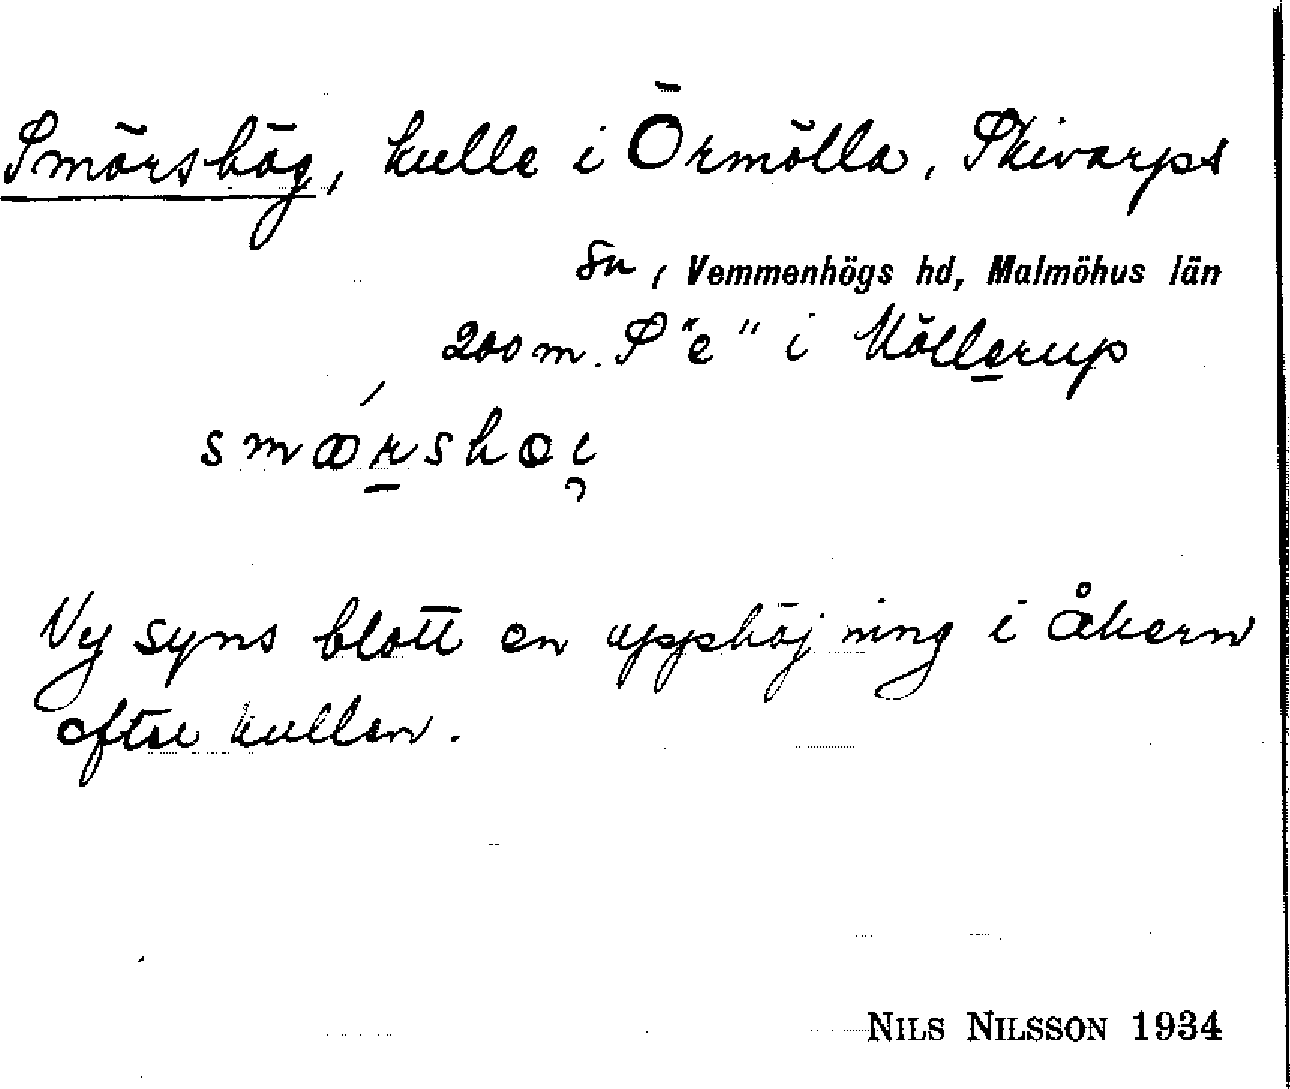 Smörshög, kulle i Örmölla, Skivarps
sn, Vemmenhögs hd, Malmöhus län
200 m. S "e" i Möllerup
smœ́rshoi̯
Ny syns blott en upphöjning i åkern
efter kullen.
NILS NILSSON 1934